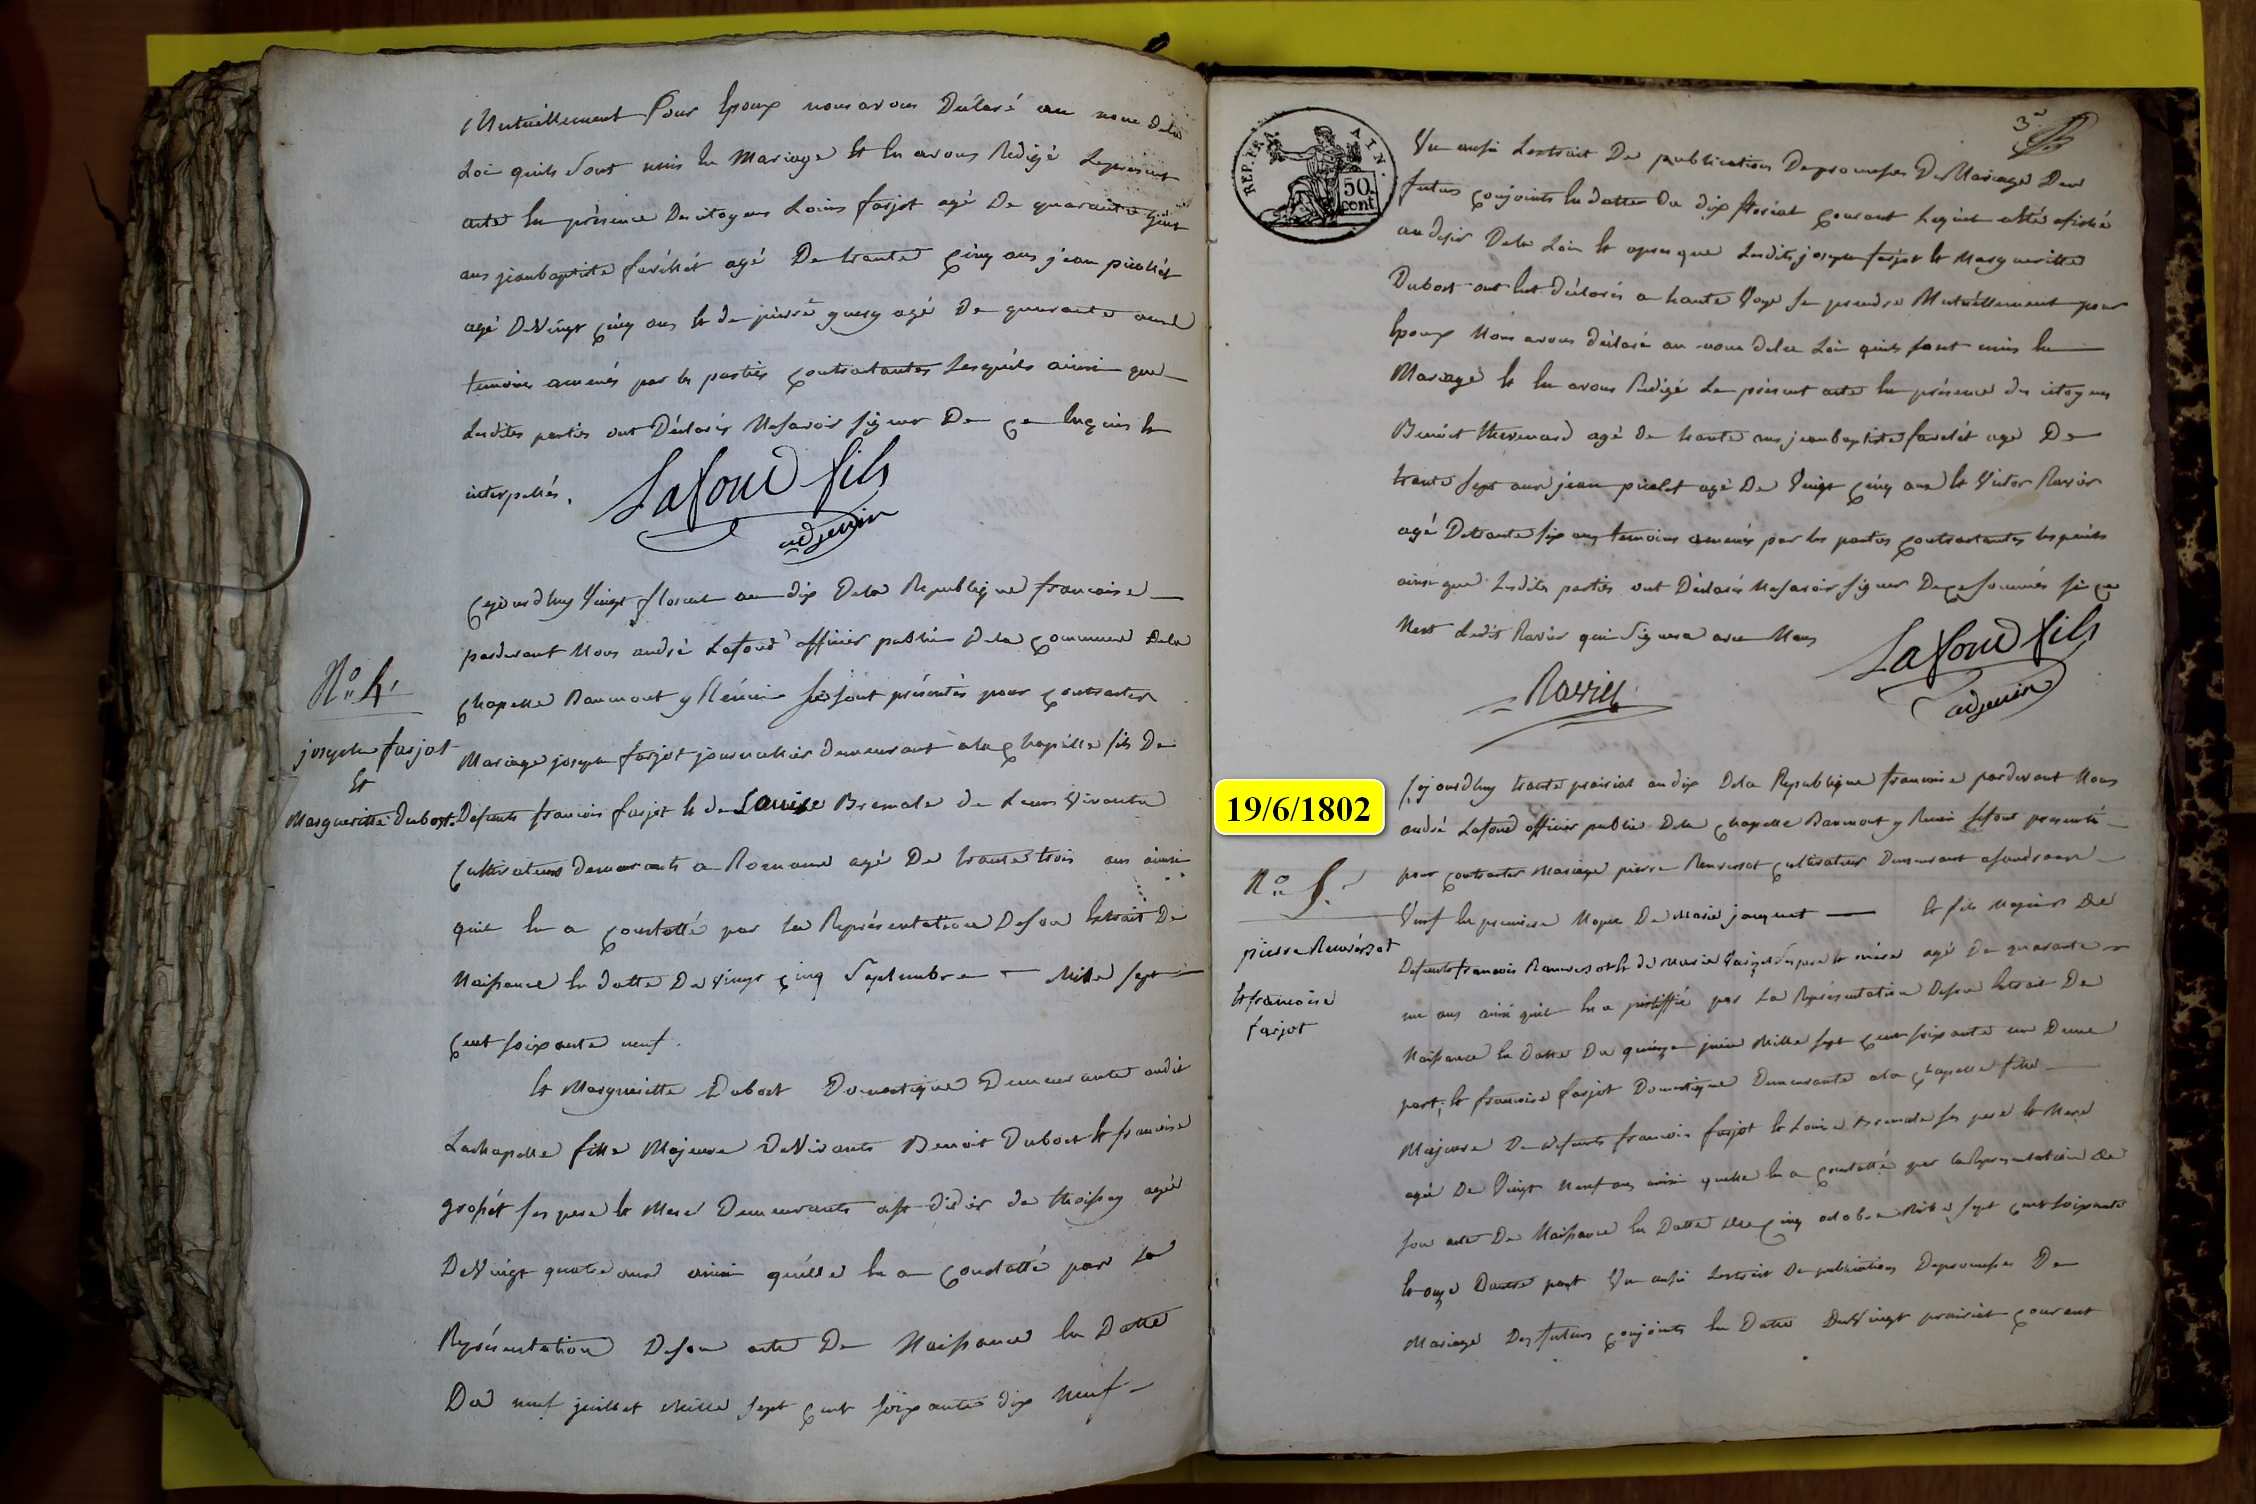 Mutuellement Pour Epoux nous avons Déclaré au nom de la
Loi quils sont unis En Mariage Et En avons Redigé Le présent
acte En présence Des citoyens Louis farjot agé De quarante
ans jean baptiste favéllét agé De trante Çinq ans jean picollét
agé De Vingt çinq ans Et de pierre guery agé De quarante ans
temoins amenés par les parties Çontractantes Lesquels ainsi que
Lesdites parties ont Déclarés Ne savoir signer De Çe Enquis Et
interpellés.
Lafond fils
adjoint
Çejourdhuy Vingt floreal an dix De la Republique francaise
pardevant Nous andré Lafond officier public De la Çommune De la
Çhapelle Baumont y Réuni se sont présentés pour Çontracter
N° 4.
joseph farjot
Et
Margueritte Dubost.
Mariage joseph farjot journallier demeurant a la Çhapelle fils De
Defunts francois farjot Et de Louise Bremale de Leurs Vivants
Çultivateurs demeurants a Romans agé De trante trois ans ainsi
quil En a Çonstatté par La Représentation De son Extrait De
Naissance En datte De Vingt Çinq Septembre Mille sept
Çent soixante neuf.
Et Margueritte Dubost Domestique Demeurante audit
La chapelle fille Majeure De Vivants Benoit Dubost Et francoise
grosét ses pere Et Mere Demeurants a st didier de thoissey agée
De Vingt quatre ans ainsi quélle En a Çonstatté par La
Réprésentation De son acte De Naissance En Datte
Du neuf juillet Mille sept Çent soixante dix Neuf
REP. FRA. AIN.
50. cent
3e
Vu aussi Lextrait De publication De promesses De Mariage Des
futurs Çonjoints En datte du dix floréal Çourant Lequel a Eté afiché
au desir De la Loi Et apres que Lesdits joseph farjot Et Margueritte
Dubost ont Eut déclarés a haute Voye se prendre Mutuéllement pour
Epoux Nous avons déclaré au nom de la Loi quils sont unis En
Mariage Et En avons Redigé Le présent acte En présence des citoyens
Benoit thevenard agé de trante ans jean baptiste favélét agé De
trante sept ans jean picolet agé De Vingt Çinq ans Et Victor Ravier
agé De trante six ans temoins amenés par les parties Çontractantes lesquels
ainsi que Lesdites parties ont Déclarés Ne savoir signer De Çe sommés si Çe
Nest Ledit Ravier qui signera avec Nous
Lafond fils
adjoint
Ravier
19/6/1802
N° 5.
pierre Renversot
Et francoise
farjot
Çejourdhuy trante prairial an dix De la Republique francaise pardevant Nous
andré Lafond officier public De la Çhapelle Baumont y Réuni se sont présenté
pour Çontracter Mariage pierre Renversot Çultivateur Demeurant a sandrans
Veuf En premiere Nopce De Marie jacquet Et fils Majeur De
Defunts francois Renversot Et de Marie ses pere Et mére agé De quarante
un ans ainsi quil En a justiffié par La Représentation De son Extrait De
Naissance En datte Du quinze juin Mille sept Çent soixante un Dune
part, Et francoise farjot Domestique Demeurante a la Çhapelle fille
Majeure De defunts francois farjot Et Louise Bremale ses pere Et Mere
agée De Vingt Neuf ans ainsi quelle En a Çonstatté par la Representation de
son acte De Naissance En Datte du Çinq octobre Mille sept Çent soixante
Et onze Dautre part Vu aussi Lextrait De publication De promesses De
Mariage Des futurs Çonjoints En Datte Du Vingt prairial Çourant